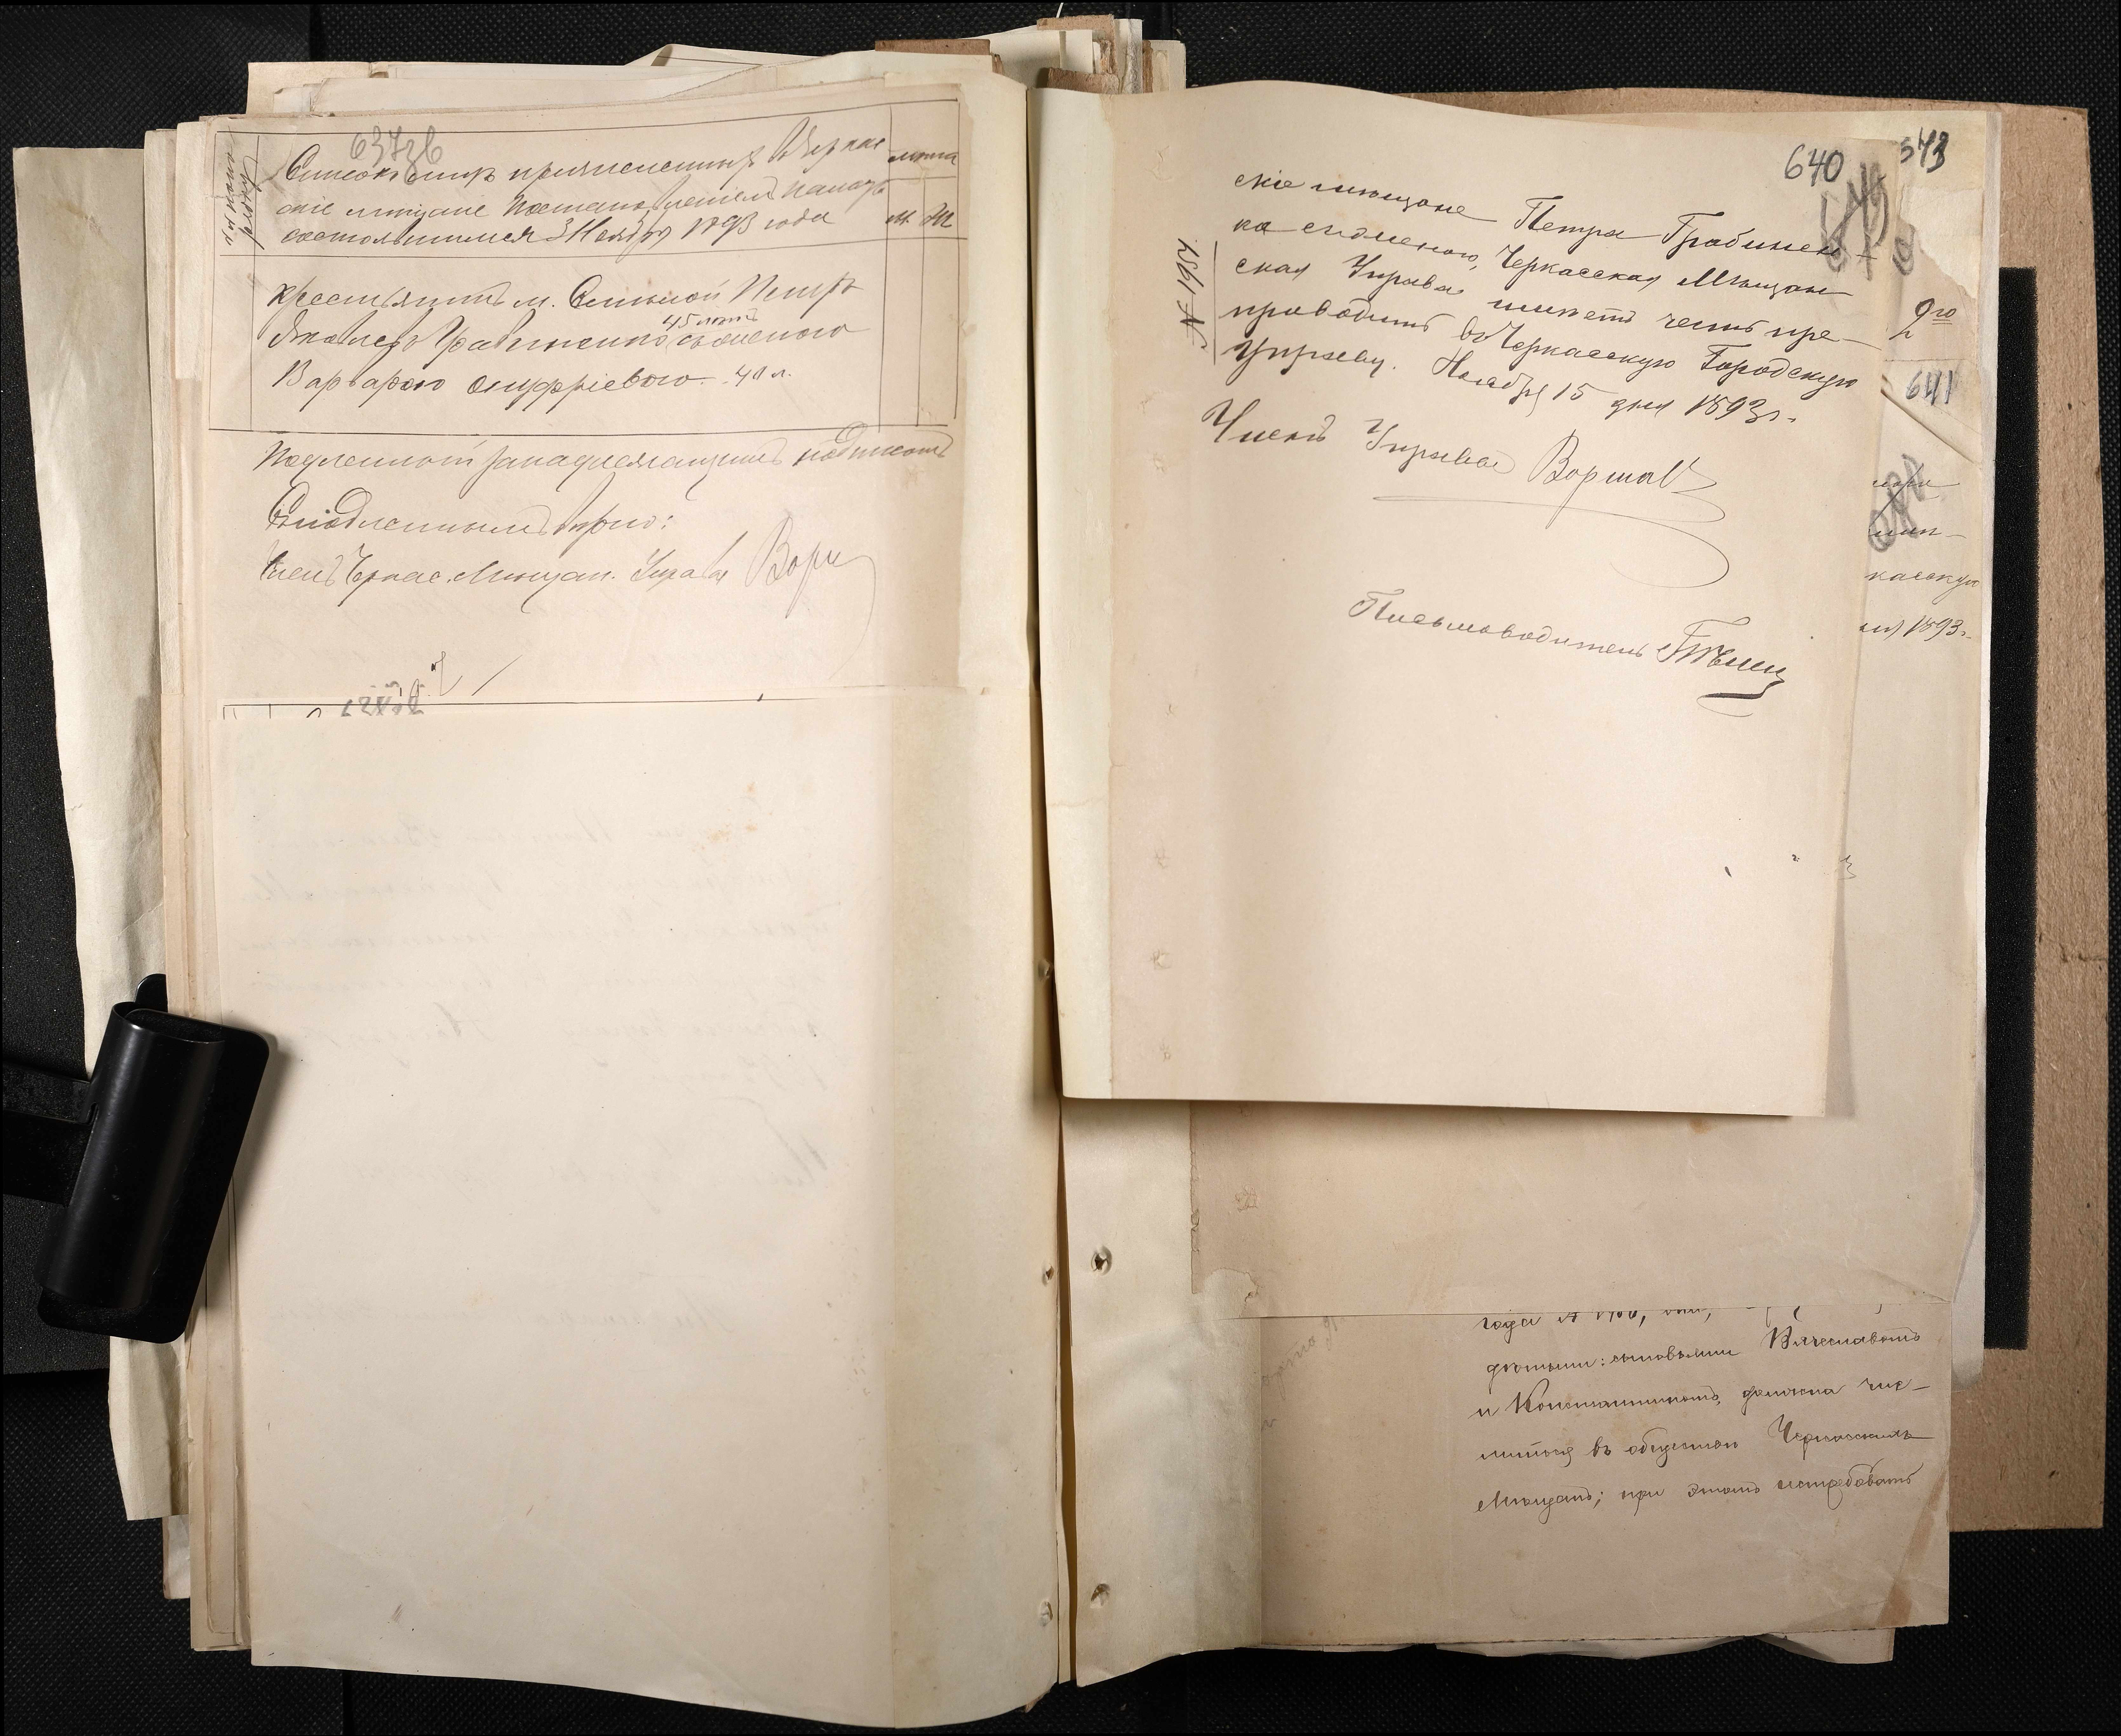 637зв
Списокъ лицъ причисленныхъ въ Черкас
скіе мѣщане Постановленіемъ Палаты
состоявшимся 3 Ноября 1893 года
лѣта
М. Ж
Крестьянинъ м. Смѣлой Петръ
45 лѣтъ
Яковлевъ Грабиненко, съ женою
Варварою Онуфріевою. 40 л.
Подлинной за надлежащимъ подписомъ
Съ подлиннымъ вѣрно:
Членъ Черкас. Мѣщан. Управы
640
573
№ 1951
скіе мѣщане Петра Грабинен-
ка съ женою, Черкасская Мѣщан
ская Управа имѣетъ честь пре-
проводить въ Черкасскую Городскую
Управу. Ноября 15 дня 1893 г.
Членъ Управы
Письмоводитель
2го
641
касскую
1893 г.
года №
дѣтьми: сыновьями Вячеславомъ
и Константиномъ, должна чис-
литься въ обществѣ Черкасскихъ
Мѣщанъ; при этомъ истребовать